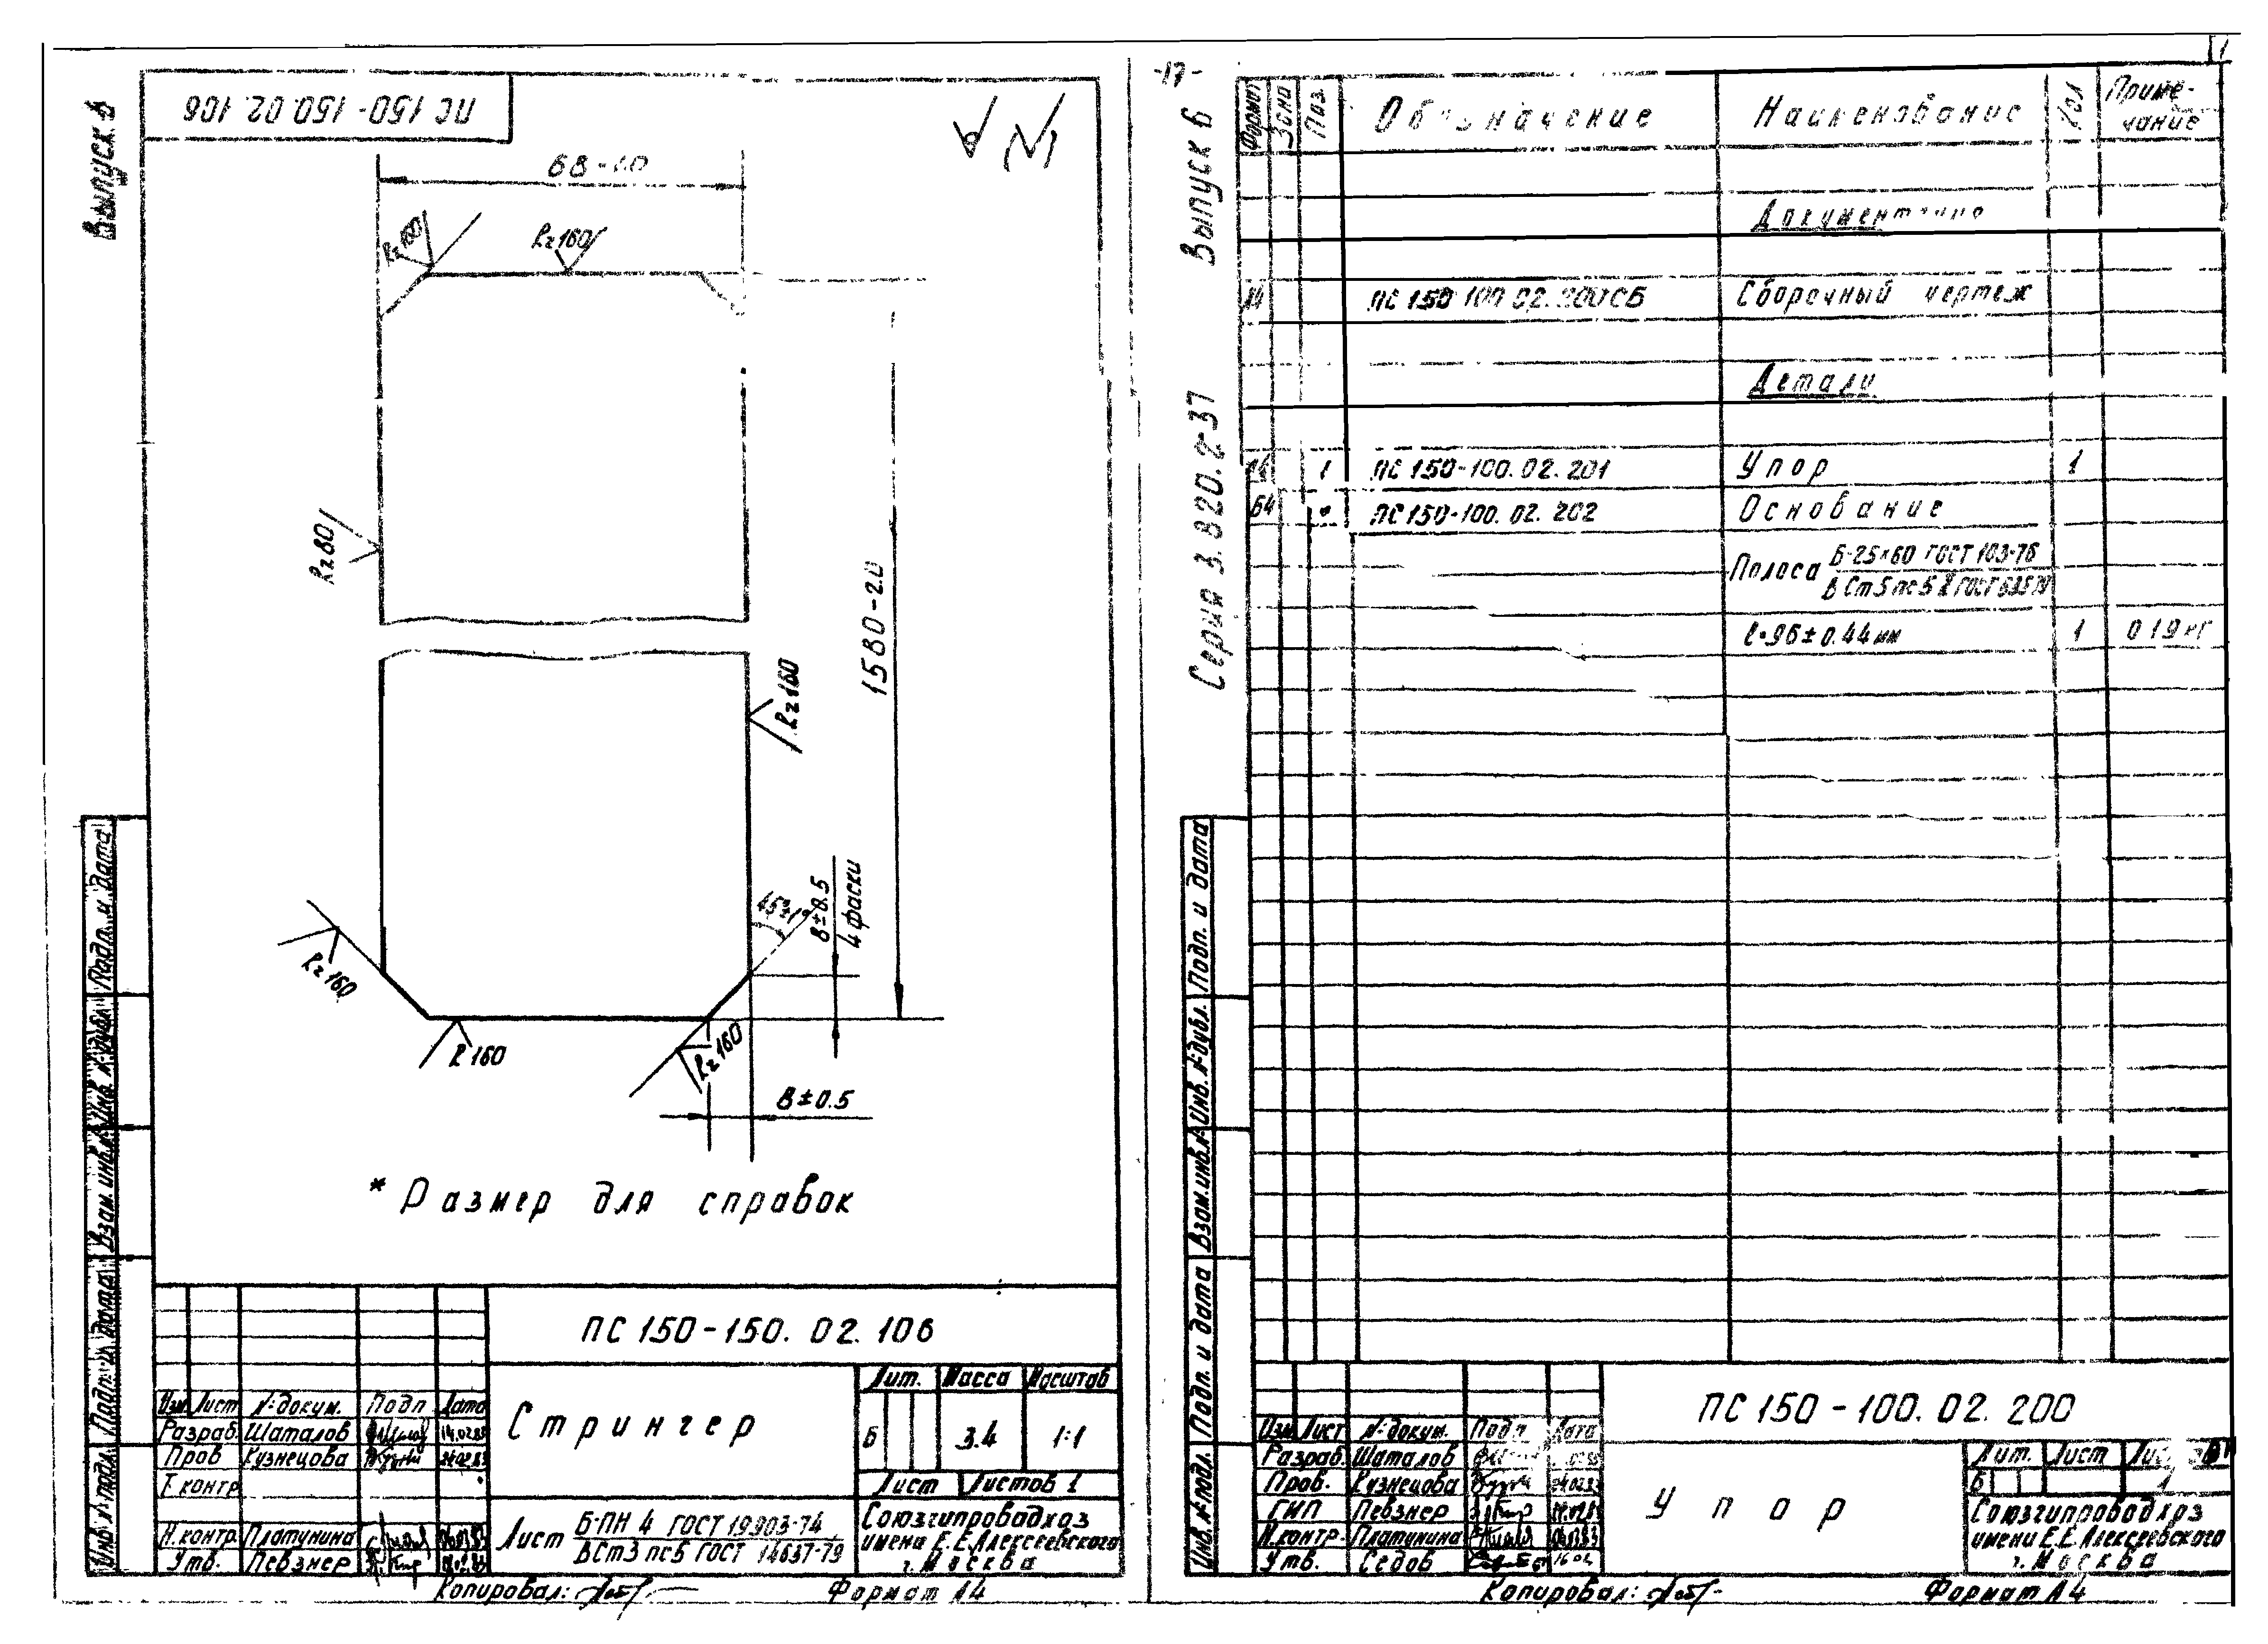 -17-
Выпуск 6
ПС 150-150.02.106
68-1.0
Rz160
Rz160
Rz80
Rz160
1580-2.0
45°±1°
8±0.5
4 фаски
Rz160
R 160
Rz160
8±0.5
* Размер для справок
Подп. и дата
Инв. № дубл.
Взам. инв. №
Подп. и дата
Инв. № подл.
ПС 150-150. 02. 106
Стрингер
Лит. Масса Масштаб
Б 3.4 1:1
Лист Листов 1
Изм. Лист № докум. Подп Дата
Разраб. Шаталов 14.02.83
Пров Кузнецова
Т. контр
Н. контр. Платунина
Утв. Певзнер
Лист Б-ПН 4 ГОСТ 19903-74
ВСт3 пс5 ГОСТ 14637-79
Союзгипроводхоз
имени Е.Е.Алексеевского
г. Москва
Копировал:
Формат А4
Серия 3.820.2-37 Выпуск 6
Формат Зона Поз. Обозначение Наименование Кол Приме-
чание
ПС 150-100.02.200СБ Сборочный чертеж
Детали
1 ПС 150-100.02.201 Упор 1
Б4 ПС 150-100.02.202 Основание
Полоса Б-25×60 ГОСТ 103-76
ℓ=96±0.44 мм 1
Подп. и дата
Инв. № дубл.
Взам. инв. №
Подп. и дата
Инв. № подл.
ПС 150-100. 02. 200
Упор
Лит. Лист
Б 1
Изм Лист № докум. Подп. Дата
Разраб. Шаталов
Пров. Кузнецова
ГИП Певзнер
Н.контр. Платунина
Утв. Седов
Союзгипроводхоз
имени Е.Е.Алексеевского
г. Москва
Копировал:
Формат А4